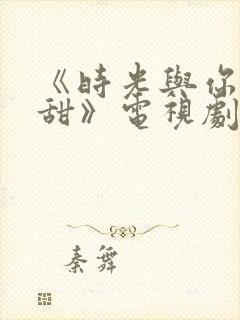 《時光與你
甜》電視劇
秦舞